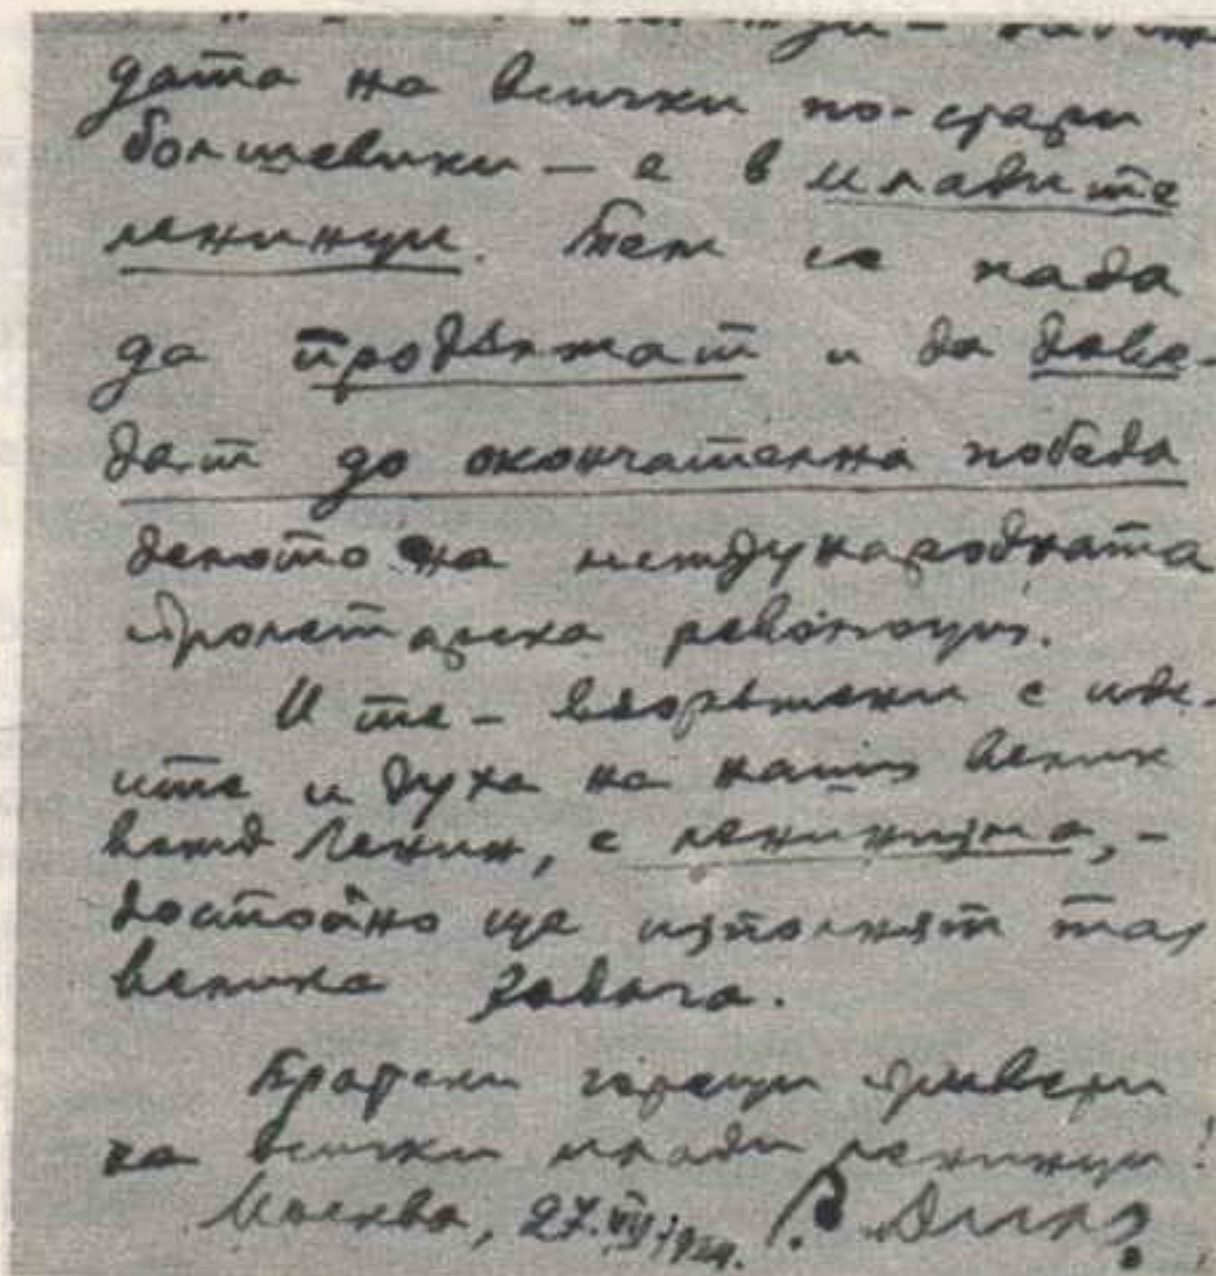 дата на всички по-стари
болшевики — е в младите
ленинци. Тем се пада
да продължат и да дове-
дат до окончателна победа
делото на международната
пролетарска революция.
И те – въоръжени с иде-
ите и духа на наший велик
вожд Ленин, с ленинизма, –
достойно ще изпълнят таз
велика задача.
Братски горещи привети
на всички млади ленинци!
Москва, 27.VII.1924.